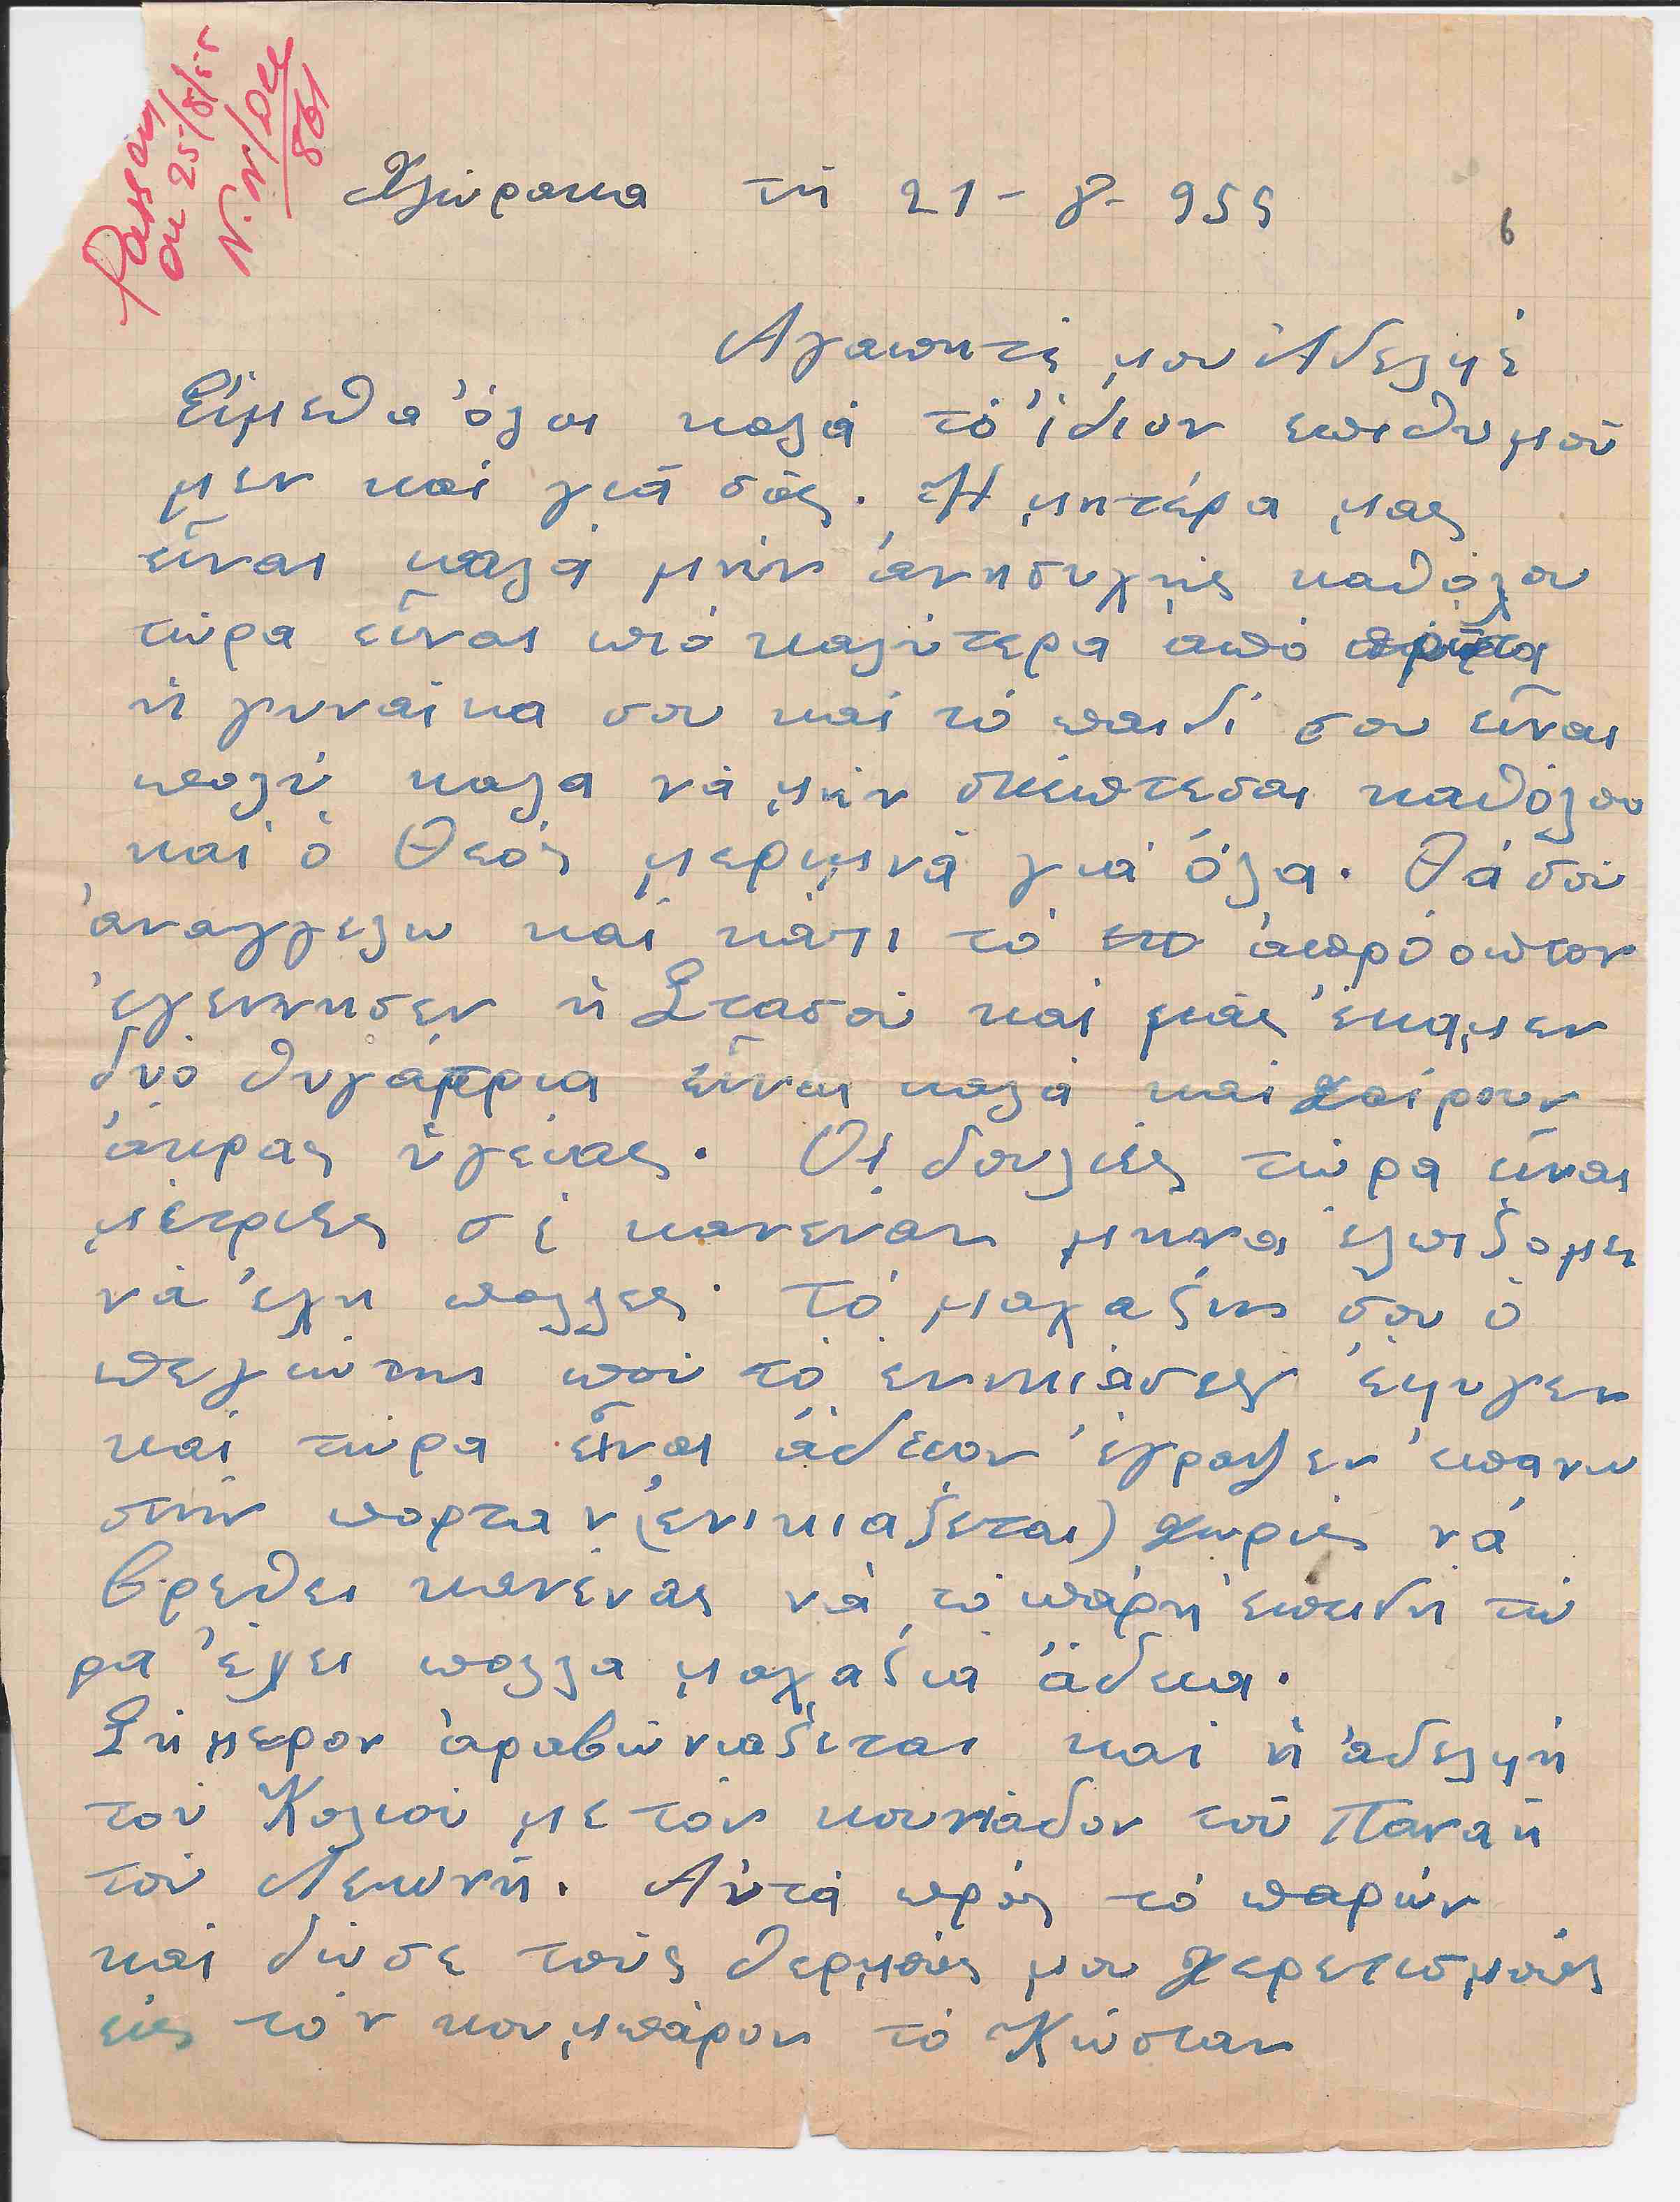 Passed
on 25/8/55
861
Χλώρακα τῇ 21-8-955
6
Αγαπητέ μου Αδελφέ
Εἴμεθα ὅλοι καλά τό ἴδιον επιθυμοῦ
μεν καί γιά σᾶς. Ἡ μητέρα μας
εἶναι καλά μήν ἀνησυχῆς καθόλου
τώρα εἶναι πιό καλύτερα ἀπό πρῶτα
ἡ γυναίκα σου καί τό παιδί σου εἶναι
πολύ καλα νά μήν σκέπτεσαι καθόλου
καί ὁ Θεός μεριμνᾶ γιά ὅλα. Θά σοῦ
ἀναγγελω καί κάτι τό ἀπρόοπτον
ἐγεννησεν ἡ Στασοῦ καί μᾶς ἔκαμεν
δυό θυγάτρια εἶναι καλά καί χαίρουν
ἄκρας ὑγείας. Οἱ δουλιές τώρα εἶναι
μέτριες σέ κανεναν μηνα ἐλπιζομεν
νά ἔχη πολλες. Τό μαγαζίν σου ὁ
πελάτης πού τό ενοικίασες ἔφυγεν
καί τώρα εἶναι ἄδειον ἔγραψεν ἐπανω
στήν πορταν (ἐνικιαζεται) χωρίς νά
βρεθει κανενας νά τό πάρη ἐπειδή τώ
ρα ἔχει πολλα μαγαζια ἄδεια.
Σήμερον ἀραβωνιαζεται καί ἡ ἀδελφή
τοῦ Κολιοῦ με τόν κουνιάδον τοῦ Παναῆ
τοῦ Λεωνῆ. Αὐτά πρός τό παρών
καί δῶσε τούς θερμούς μου χερετισμούς
εἰς τόν κουμπάρον τό Κώσταν